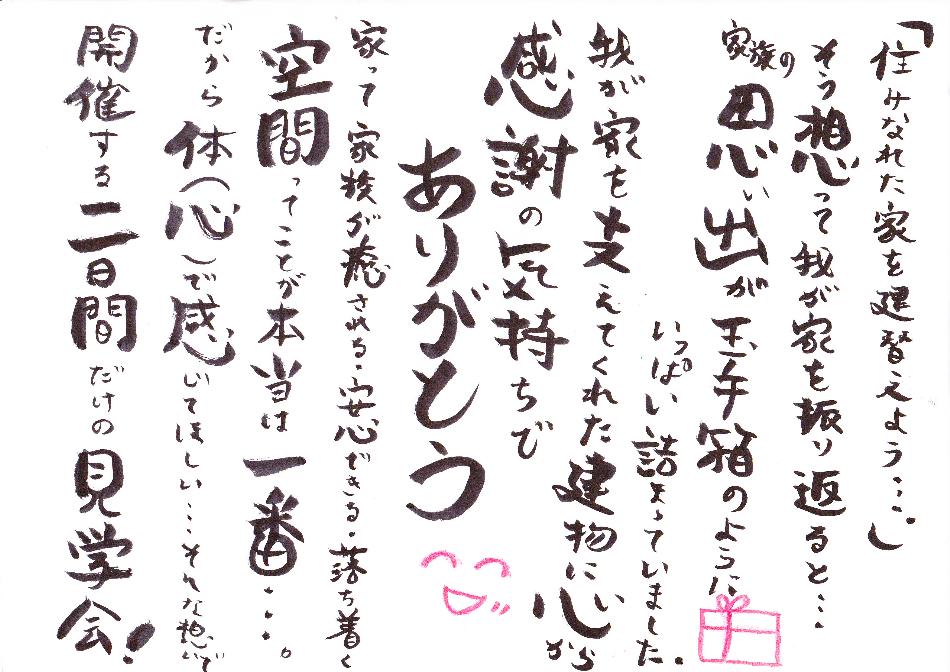 「住みなれた家を建替えよう…」
そう想って我が家を振り返ると…
家族の思い出が玉手箱のように
いっぱい詰まっていました。
我が家を支えてくれた建物に心から
感謝の気持ちで
ありがとう
家って家族が癒される・安心できる・落ち着く
空間ってことが本当は一番…。
だから体(心)で感じてほしい…そんな想いで
開催する二日間だけの見学会!